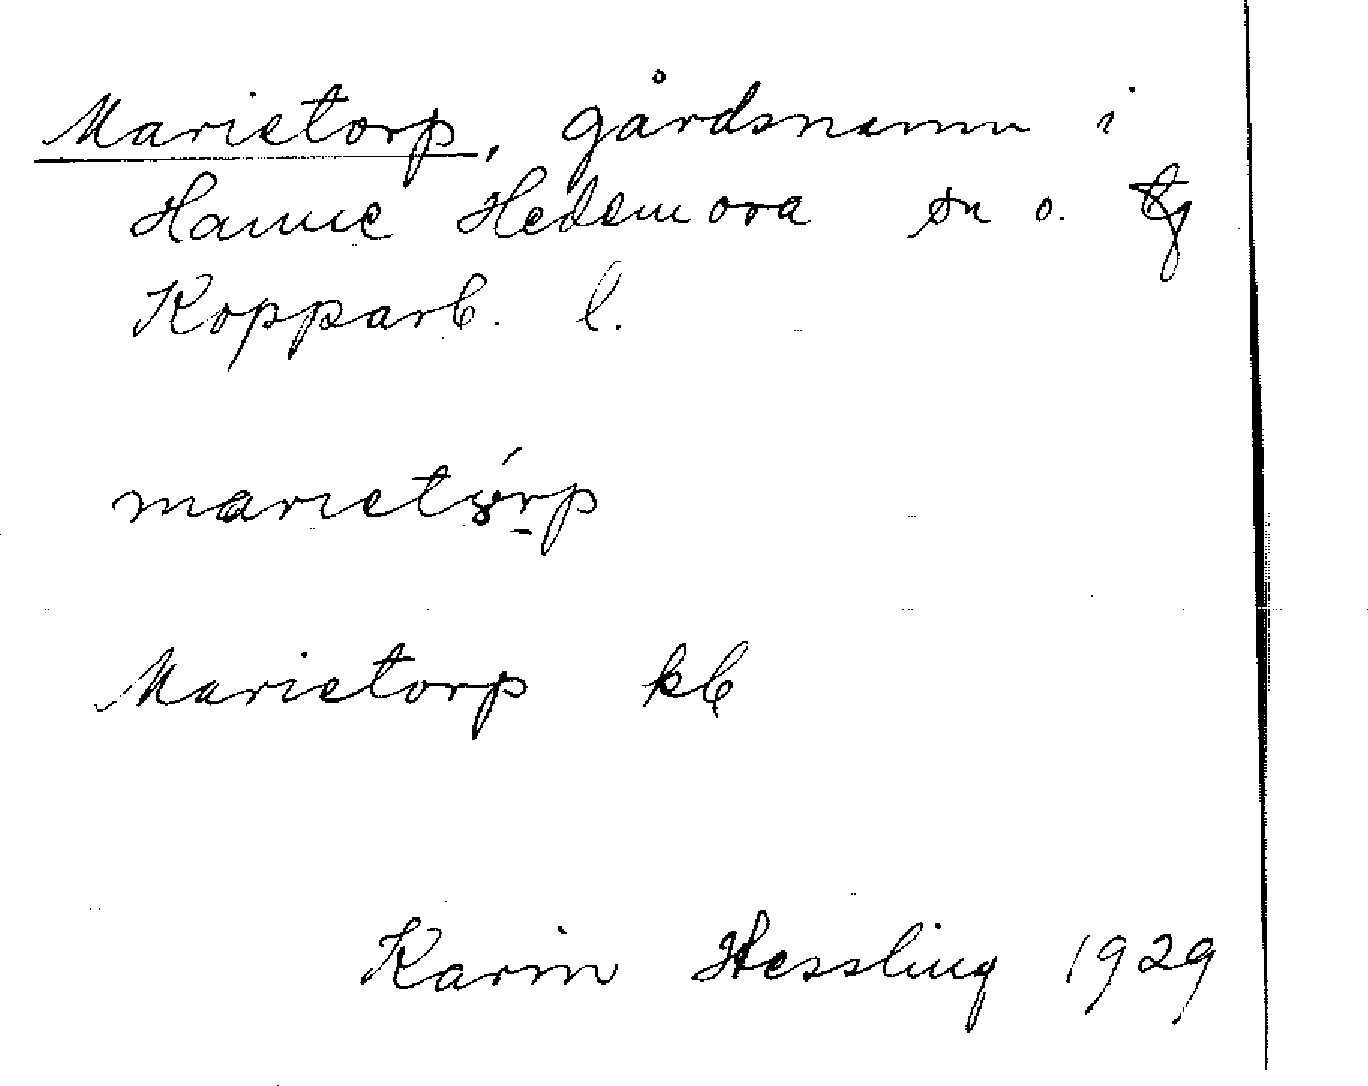 Marietorp, gårdsnamn i
Hamre Hedemora sn o. tg
Kopparb. l.
marietórp
Marietorp kb
Karin Hessling 1929